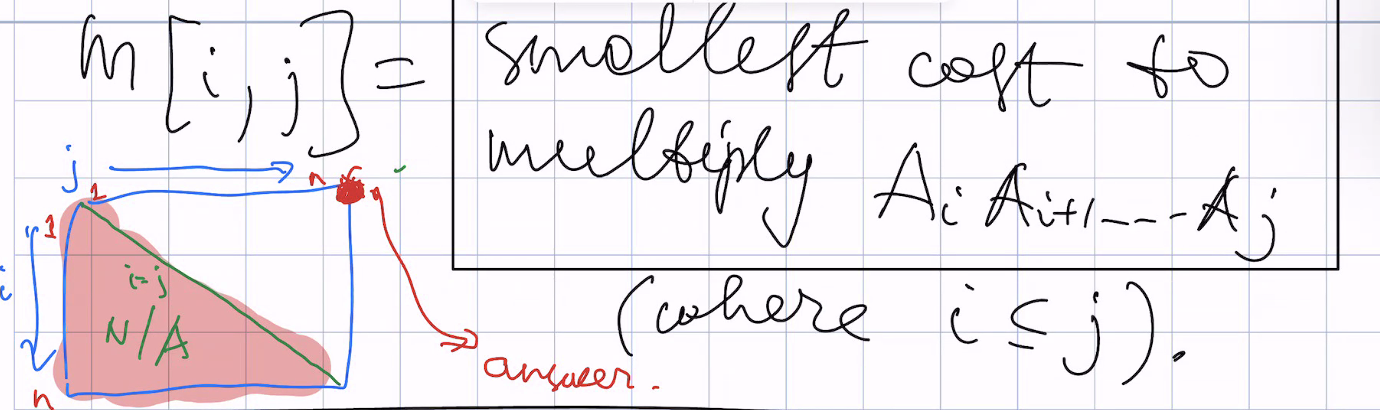 m[i,j] = smallest cost to
multiply A_i A_{i+1} --- A_j
(where i ≤ j).
j
n
1
1
i
i=j
N/A
n
answer.